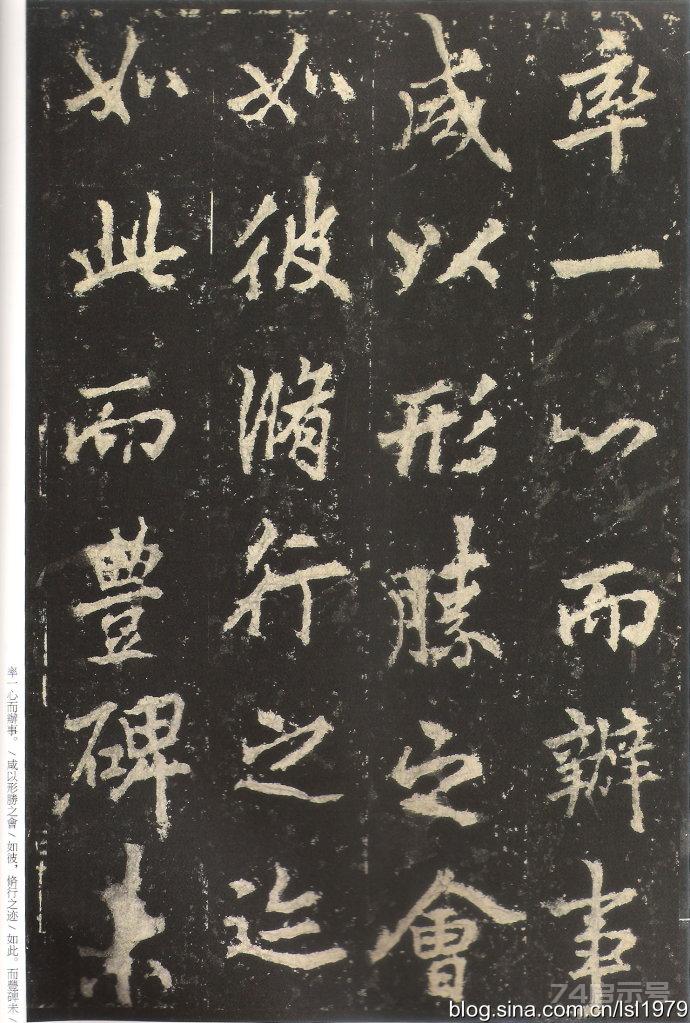 率一心而辦事
咸以形勝之會
如彼脩行之迹
如此而豐碑未
率一心而辦事。/咸以形勝之會/如彼,脩行之迹/如此。而豐碑未/
74启示号
blog.sina.com.cn/lsl1979